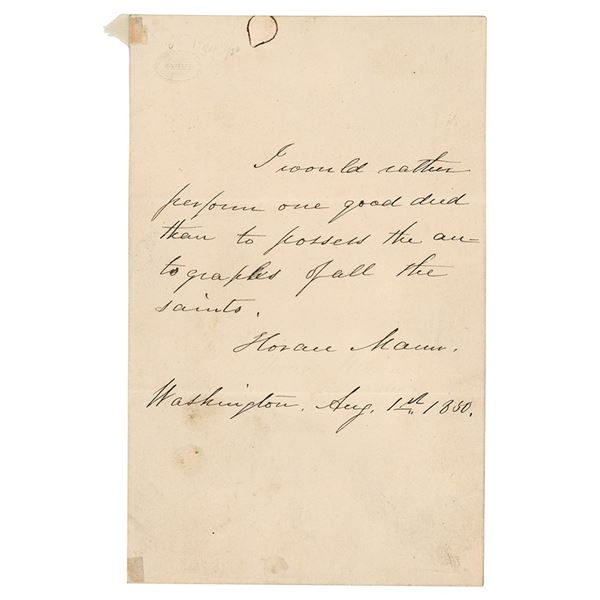 I would rather
perform one good deed
than to possess the au-
tographs of all the
saints.
Horace Mann.
Washington, Aug. 1st, 1850.